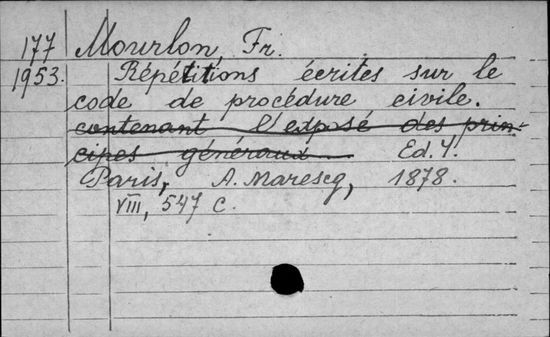 177 Mourlon Fr.
1953. Répétitions écrites sur le
code de procédure civile.
contenant l'exposé des prin-
cipes généraux... Ed. 4.
Paris, A. Marescq, 1878.
VIII, 547 c.